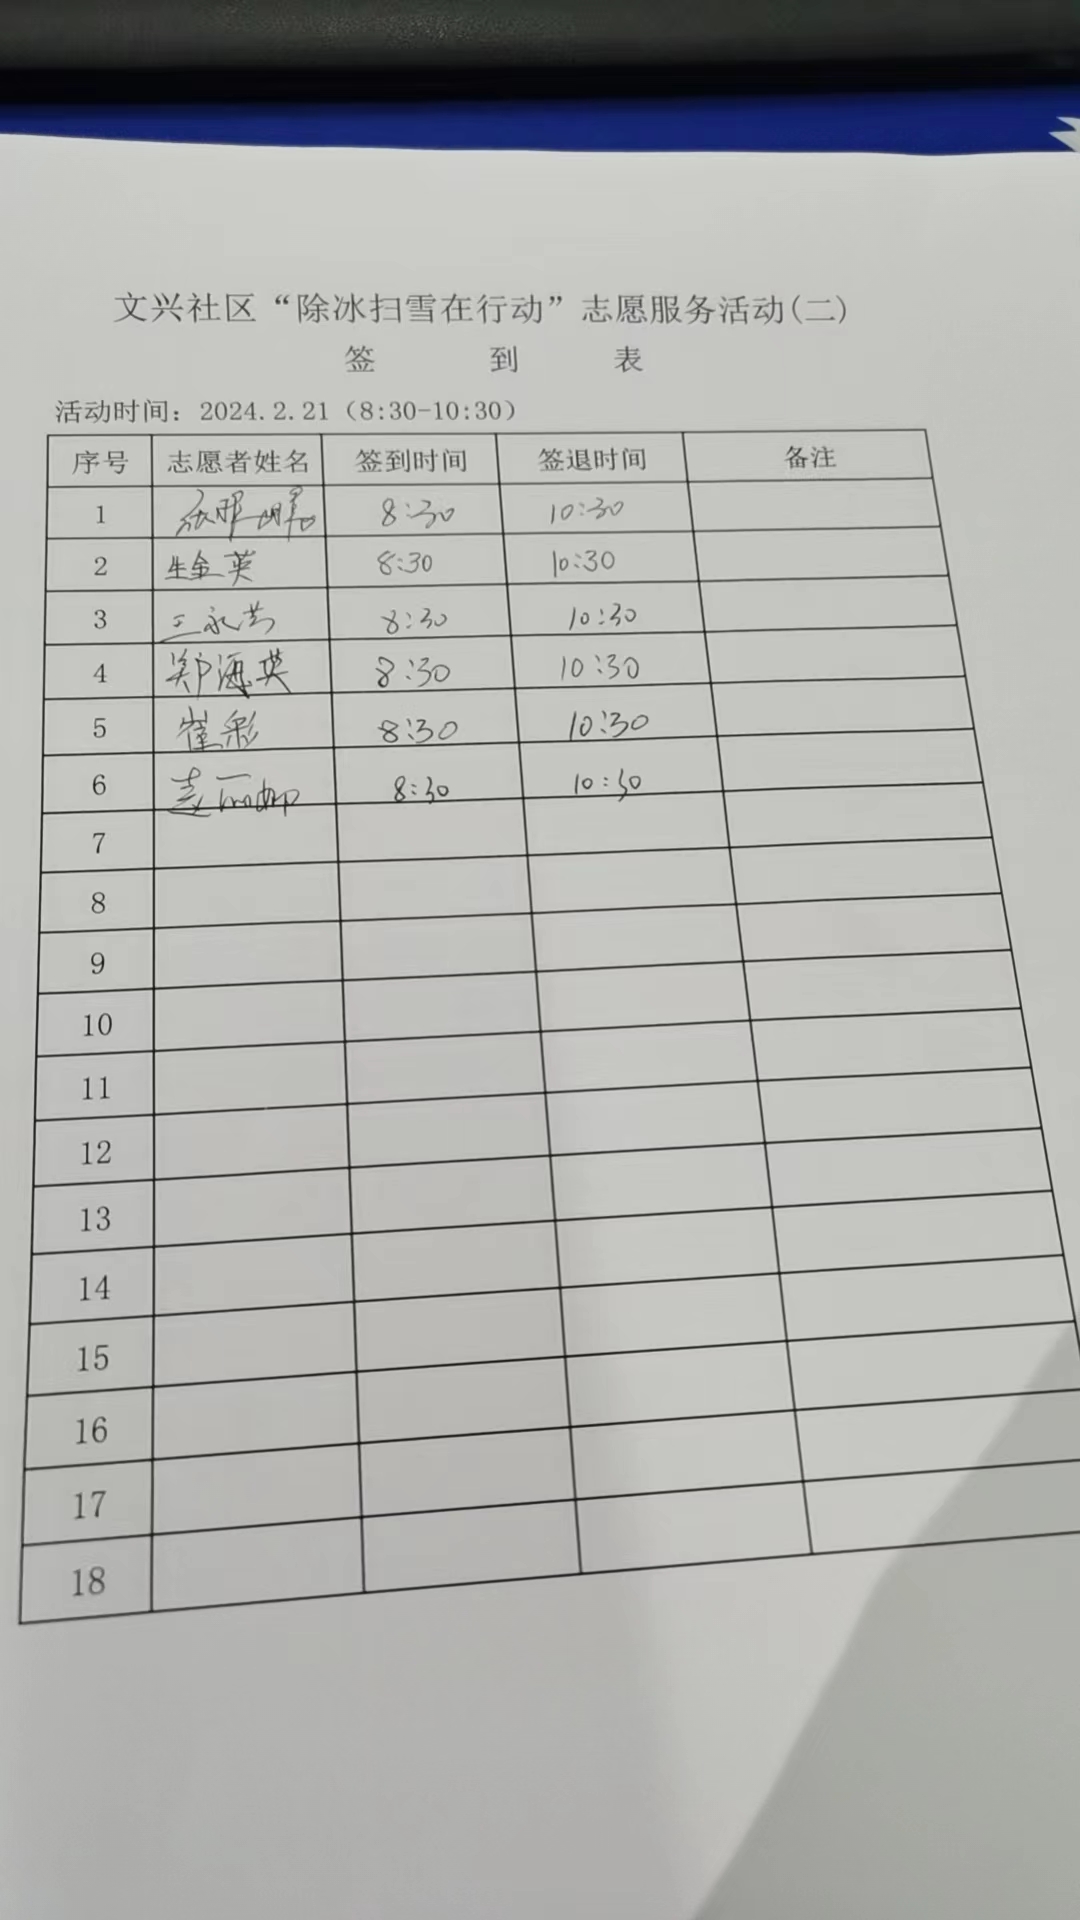 文兴社区“除冰扫雪在行动”志愿服务活动(二)
签 到 表
活动时间：2024.2.21（8:30-10:30）
序号 志愿者姓名 签到时间 签退时间 备注
1 8:30 10:30
2 生金英 8:30 10:30
3 王永芳 8:30 10:30
4 郑海英 8:30 10:30
5 崔彩 8:30 10:30
6 赵丽娜 8:30 10:30
7
8
9
10
11
12
13
14
15
16
17
18